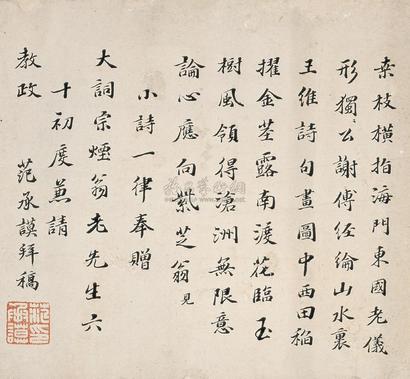 桒枝橫指海門東國老儀
形獨公謝傅經綸山水裏
王維詩句畫圖中西田稻
擢金莖露南渡花臨玉
樹風領得滄洲無限意
論心應向紫芝翁見
小詩一律奉贈
大詞宗煙翁老先生六
十初度兼請
教政
范承謨拜稿